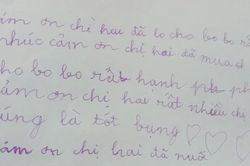 ảm ơn chị hai đã lo cho bo bo rấ
phúc cảm ơn chị hai đã mua c
ho bo bo rất hạnh ph
ảm ơn chị hai rất nhiều chị
úng là tốt bụng ♡♡
ảm ơn chị hai đã nuô